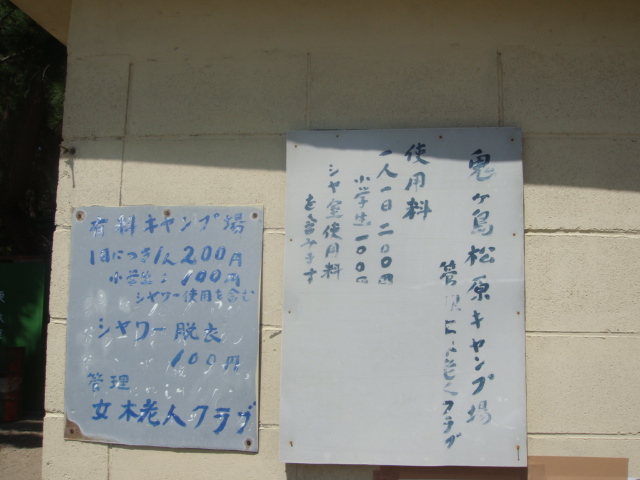 有料キャンプ場
1日につき1人200円
小学生: 100円
シャワー使用を含む
シャワー脱衣
100円
管理
女木老人クラブ
鬼ヶ島松原キャンプ場
クラブ
使用料
一人一日二〇〇円
小学生一〇〇円
シャ室使用料
を含みます